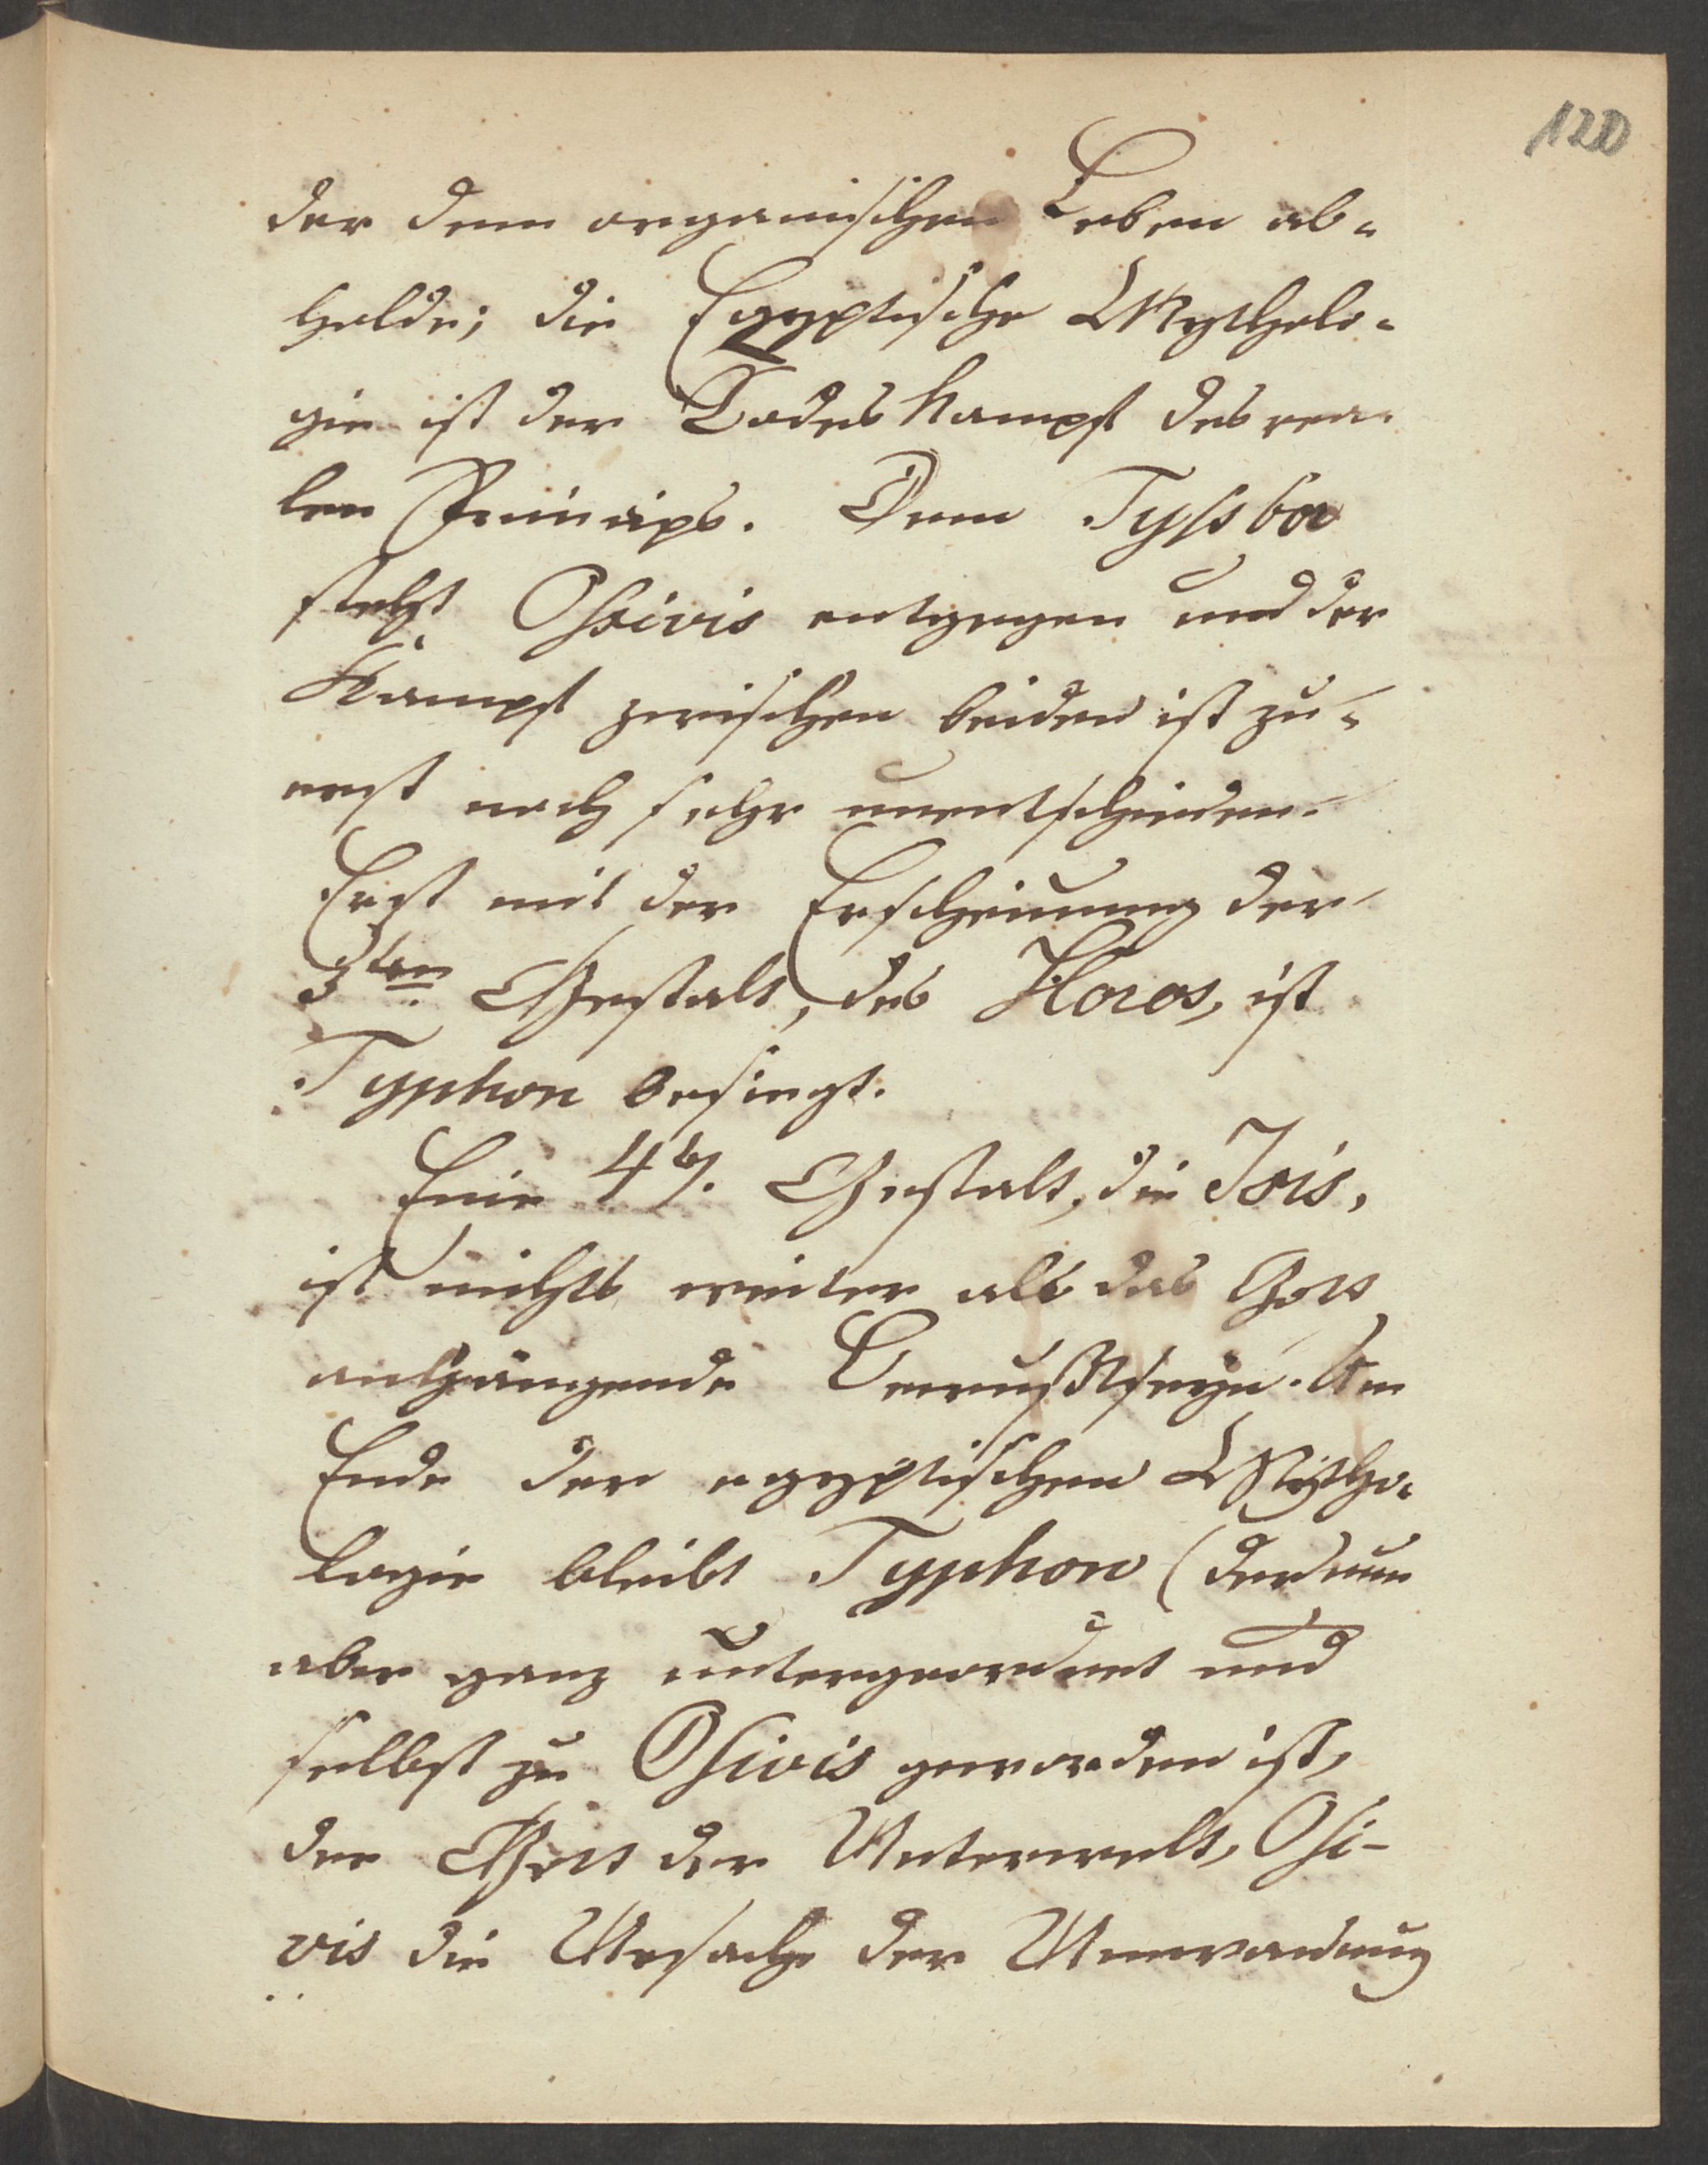 120
der dem organischen Leben ab-
holde; die Egyptische Mytholo-
gie ist der Todeskampf des rea-
len Princips. Dem
steht Osiris entgegen und der
Kampf zwischen beiden ist zu-
erst noch sehr unentschieden.
Erst mit der Erscheinung der
3ten Gestalt, des Horos, ist
Typhon besiegt.
Eine 4te. Gestalt, die Isis,
ist nichts weiter als das Gott
anhängende Bewußtseyn. Am
Ende der egyptischen Mytho-
logie bleibt Typhon (der nun
aber ganz untergeordnet und
selbst zu Osiris geworden ist,
der Gott der Unterwelt, Osi-
ris die Ursache der